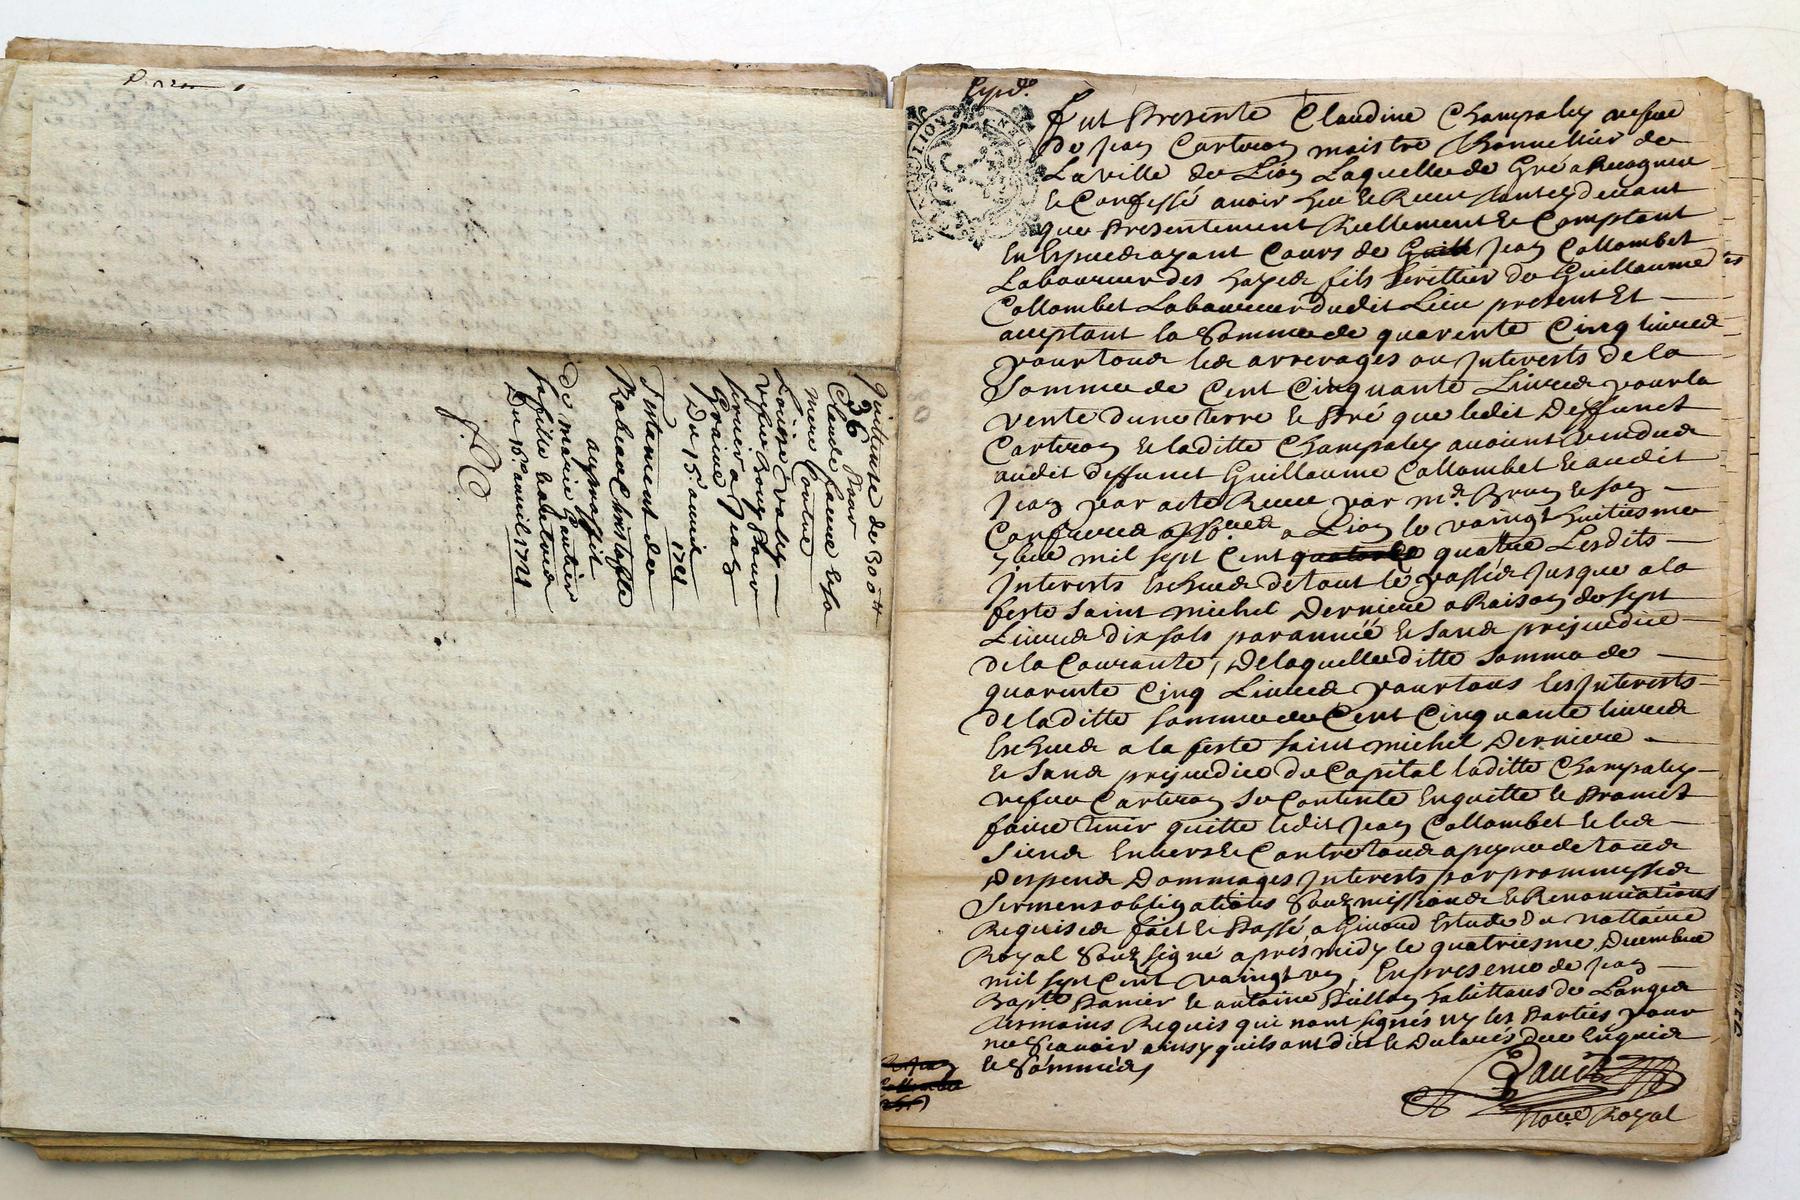 quittance de 30 ₶
36 pour
Claude faure et sa
mere Couture
Louise valley
vefve
fornier a Jean
Graine
Du 15e avril
1721
Testament de
Rabeau Christofle
au proffit
de marie Gontier
sa fille
Du 16e avril 1721
Expd.o
fut Presente Claudine Champaley vefve
de Jean Carteron maistre Thonnellier de
La ville de Lion Laquelle de Gré a Recogneu
et Confessé avoir heu et Receu tant cy devant
que Presentement Réellement et Comptant
En Especes ayant Cours de Jean Collombet
Laboureur des hayes fils heritier de Guillaume
Collombet Laboureur dudit Lieu present et
acceptant la Somme de quarente Cinq livres
pour tous les arrerages ou Interests de la
Somme de Cent Cinquante Livres pour la
vente dune terre et Pré que ledit Deffunct
Carteron et laditte Champaley avoient vendues
audit deffunct Guillaume Collombet et audit
Jean par acte Receu par me Brun et son
Confrere a Lion le vaingt huitiesme
7bre mil sept Cent quatre Lesdits
Interests Escheus de tout le passé Jusque a la
feste Saint michel Derniere a Raison de sept
Livres dix sols par année et sans prejudice
de la Courante, De laquelle ditte Somme de
quarente Cinq Livres pour tous les Interests
de laditte Somme de Cent Cinquante livres
Escheus a la feste saint michel Derniere
et Sans prejudice du Capital laditte Champaley
vefve Carteron Se Contente En quitte et Promet
faire tenir quitte ledit Jean Collombet et les
Siens Envers et Contre tous a peyne de tous
Despens Dommages Interests par prommesses
Sermens obligations Soubzmissions et Renonciations
Requises fait et Passé a Givord Estude du nottaire
Royal Soubzsigné aprés midy le quatriesme Decembre
mil sept Cent vaingt un, En presence de Jean
Bapte Panier et antoine habittans de
Requis qui nont signés ny les Parties pour
ne Scavoir ainsy quils ont dict et Declarés de ce Enquis
et Sommés
Note Royal